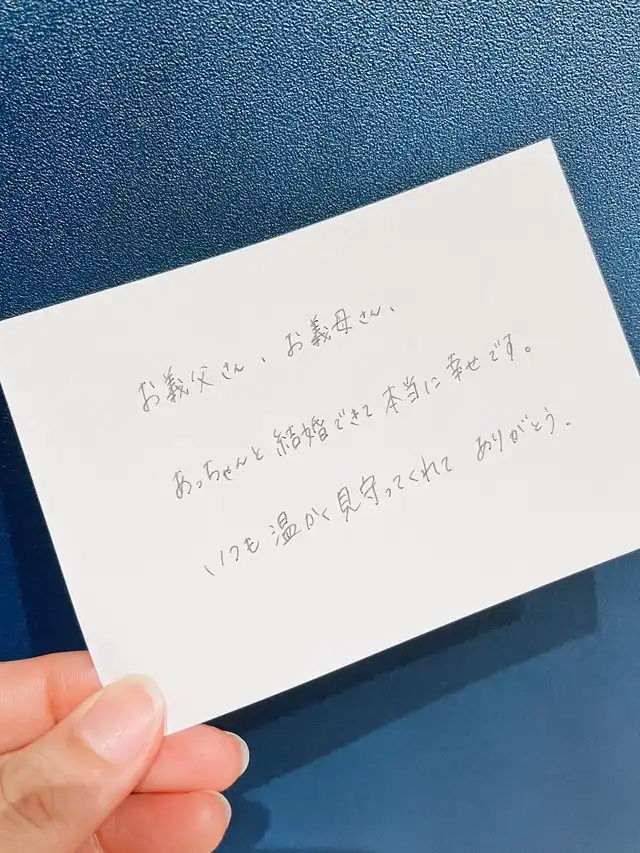 お義父さん、お義母さん、
あっちゃんと結婚できて本当に幸せです。
いつも温かく見守ってくれて ありがとう。